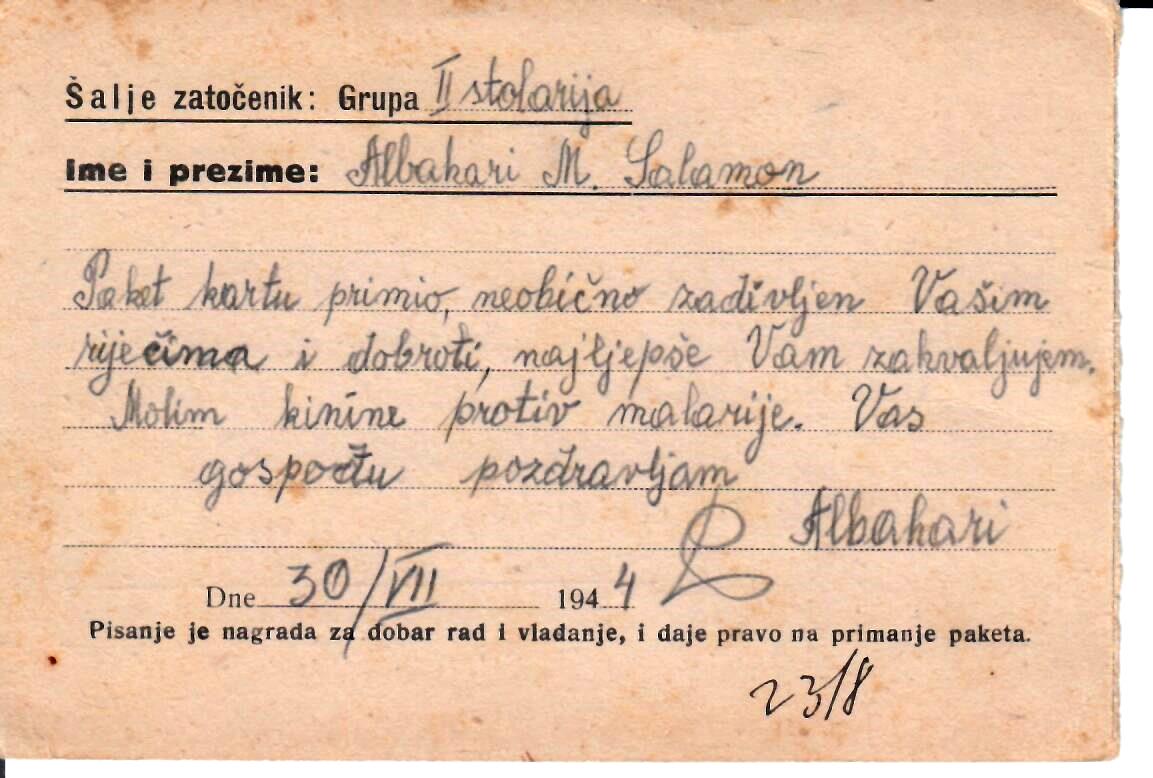 Šalje zatočenik: Grupa II stolarija
Ime i prezime: Albahari M. Salamon
Paket kartu primio, neobično zadivljen Vašim
riječima i dobroti, najljepše Vam zahvaljujem.
Molim kinine protiv malarije. Vas
gospođu pozdravljam
Albahari
Dne 30/VII 1944
Pisanje je nagrada za dobar rad i vladanje, i daje pravo na primanje paketa.
23/8